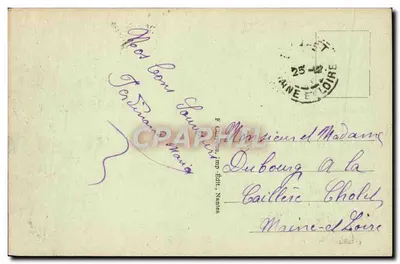 Nos bons Souvenirs
Ferdinand Maria
Imp. Édit., Nantes
25
MAINE ET LOIRE
CPARAMA
Monsieur et Madame
Dubourg A la
Caillère Cholet
Maine-et-Loire